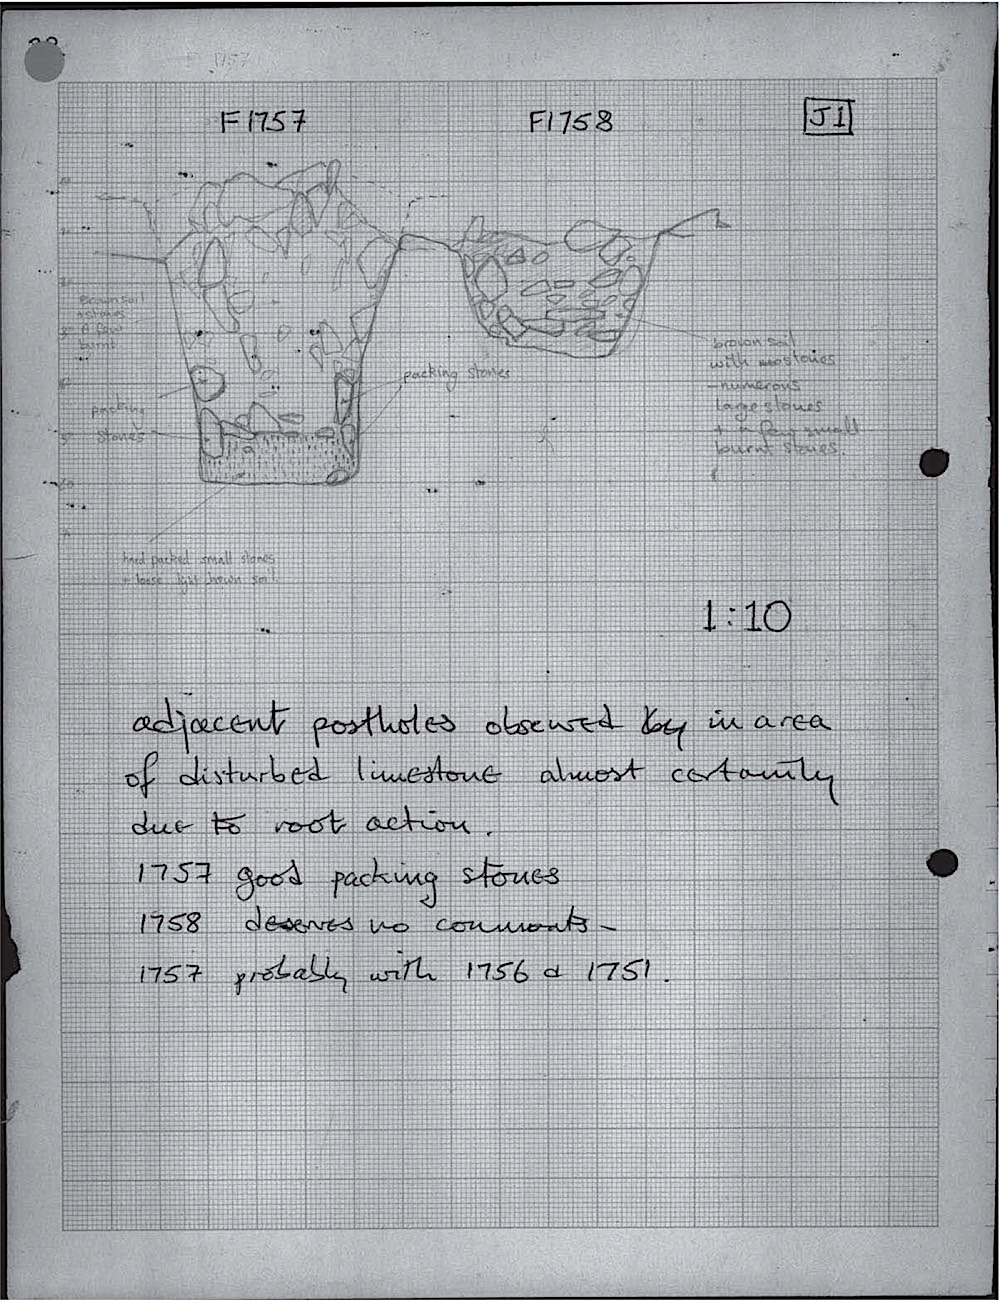 F1757 F1758 J1
Brown soil
+ stones
A few
burnt
packing
stones
packing stones
brown soil
with stones
-numerous
large stones
+ a few small
burnt stones.
hard packed small stones
+ loose light brown soil
1:10
adjacent postholes observed in area
of disturbed limestone almost certainly
due to root action.
1757 good packing stones
1758 deserves no comments -
1757 probably with 1756 & 1751.